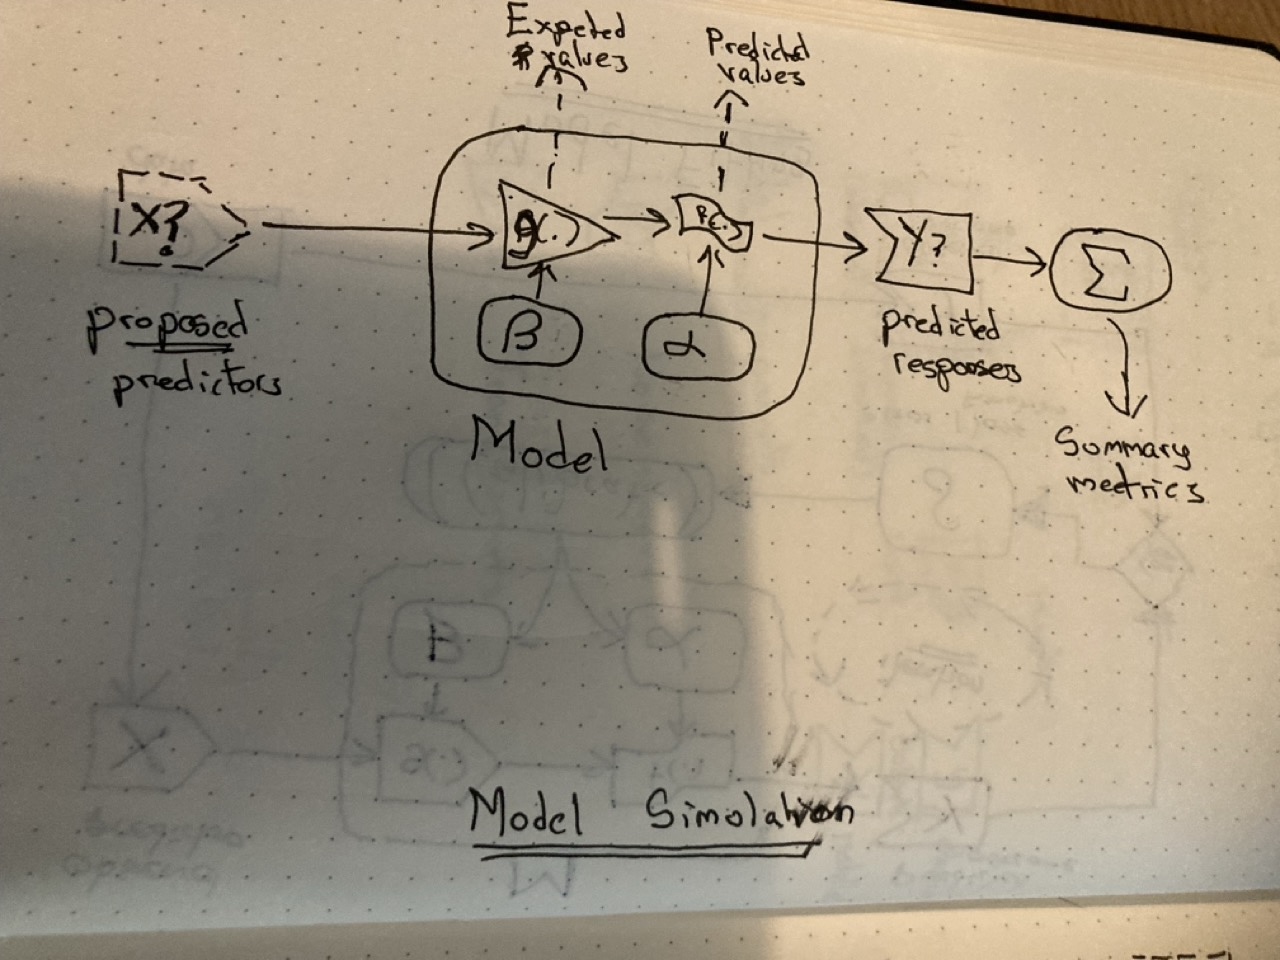 Expeted
values
Predicted
values
X?
g(.)
P(.)
Y?
Σ
β
α
proposed
predictors
predicted
responses
Model
Summary
metrics
Model Simulation